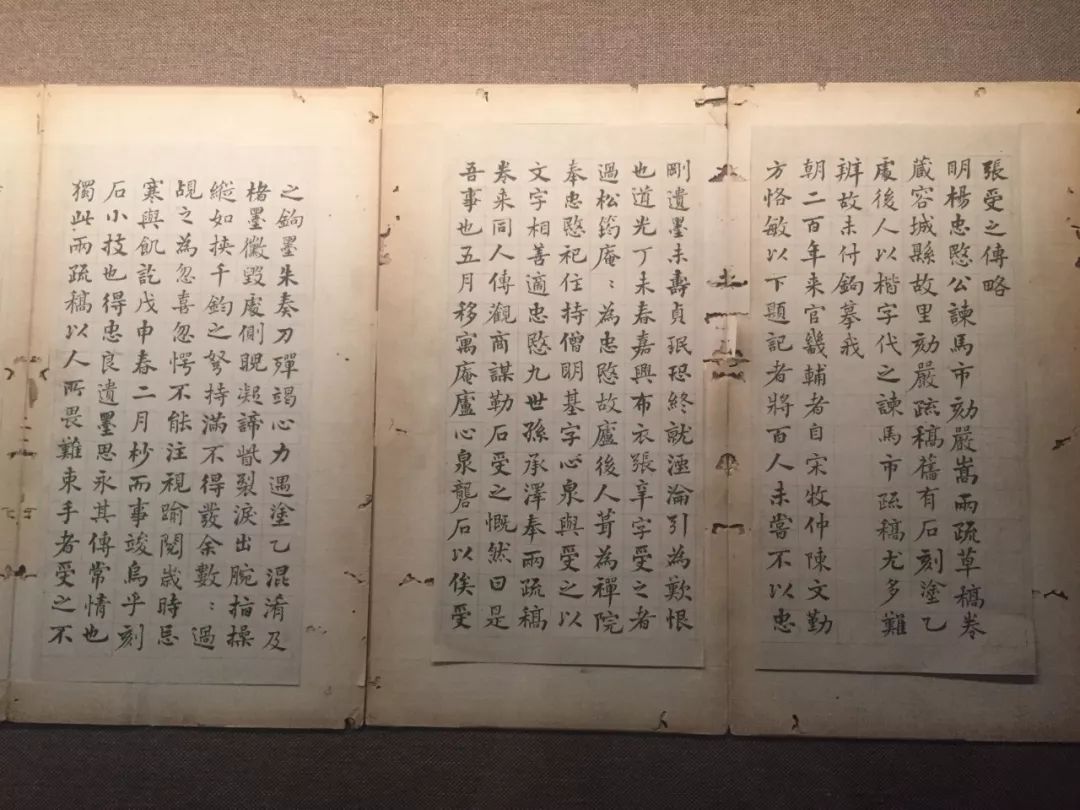 張受之傳略
明楊忠愍公諫馬市劾嚴嵩兩疏草稿卷
藏容城縣故里劾嚴疏稿舊有石刻塗乙
處後人以楷字代之諫馬市疏稿尤多難
辨故未付鉤摹我
朝二百年来官畿輔者自宋牧仲陳文勤
方恪敏以下題記者將百人未嘗不以忠
剛遺墨未壽貞珉恐終就湮淪引為歎恨
也道光丁未春嘉興布衣張辛字受之者
過松筠庵〻為忠愍故廬後人葺為禪院
奉忠愍祀住持僧明基字心泉與受之以
文字相善適忠愍九世孫承澤奉兩疏稿
卷来同人傳觀商謀勒石受之慨然曰是
吾事也五月移寓庵廬心泉礱石以俟受
之鉤墨朱奏刀殫竭心力遇塗乙混淆及
楮墨黴毀處側睨凝諦眥裂淚出腕指操
縱如挾千鈞之弩持滿不得發余數〻過
覘之為忽喜忽愕不能注視踰閱歲時忌
寒與飢訖戊申春二月杪而事竣烏乎刻
石小技也得忠良遺墨思永其傳常情也
獨此兩疏稿以人所畏難束手者受之不